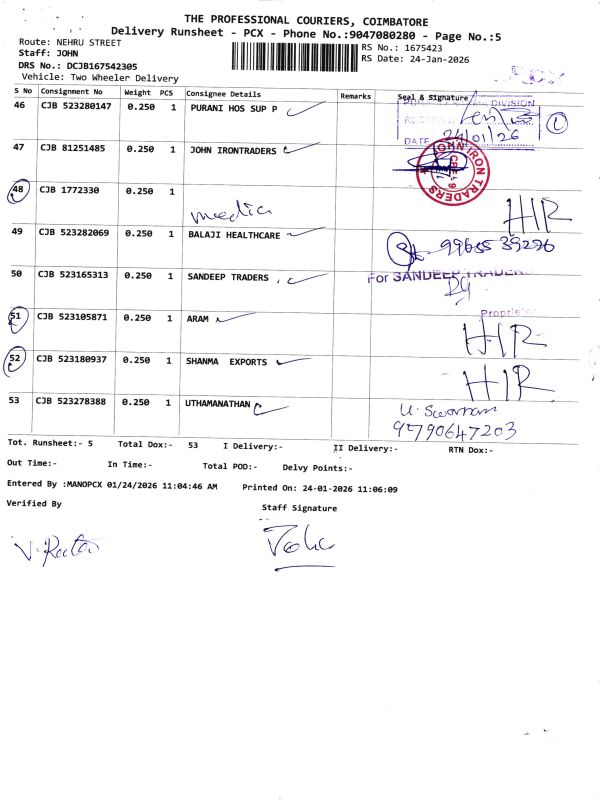 THE PROFESSIONAL COURIERS, COIMBATORE
Delivery Runsheet - PCX - Phone No.:9047080280 - Page No.:5
Route: NEHRU STREET
RS No.: 1675423
Staff: JOHN
RS Date: 24-Jan-2026
DRS No.: DCJB167542305
Vehicle: Two Wheeler Delivery
S No Consignment No Weight PCS Consignee Details Remarks Seal & Signature
46 CJB 523280147 0.250 1 PURANI HOS SUP P
DIVISION
DATE 24/01/26
47 CJB 81251485 0.250 1 JOHN IRONTRADERS
JOHN IRON TRADERS
48 CJB 1772330 0.250 1
media
H/R
49 CJB 523282069 0.250 1 BALAJI HEALTHCARE
99655 39296
50 CJB 523165313 0.250 1 SANDEEP TRADERS
For SANDEEP TRADERS
51 CJB 523105871 0.250 1 ARAM
H/R
52 CJB 523180937 0.250 1 SHANMA EXPORTS
H/R
53 CJB 523278388 0.250 1 UTHAMANATHAN
9790647203
Tot. Runsheet:- 5 Total Dox:- 53 I Delivery:- II Delivery:- RTN Dox:-
Out Time:- In Time:- Total POD:- Delvy Points:-
Entered By :MANOPCX 01/24/2026 11:04:46 AM Printed On: 24-01-2026 11:06:09
Verified By
Staff Signature